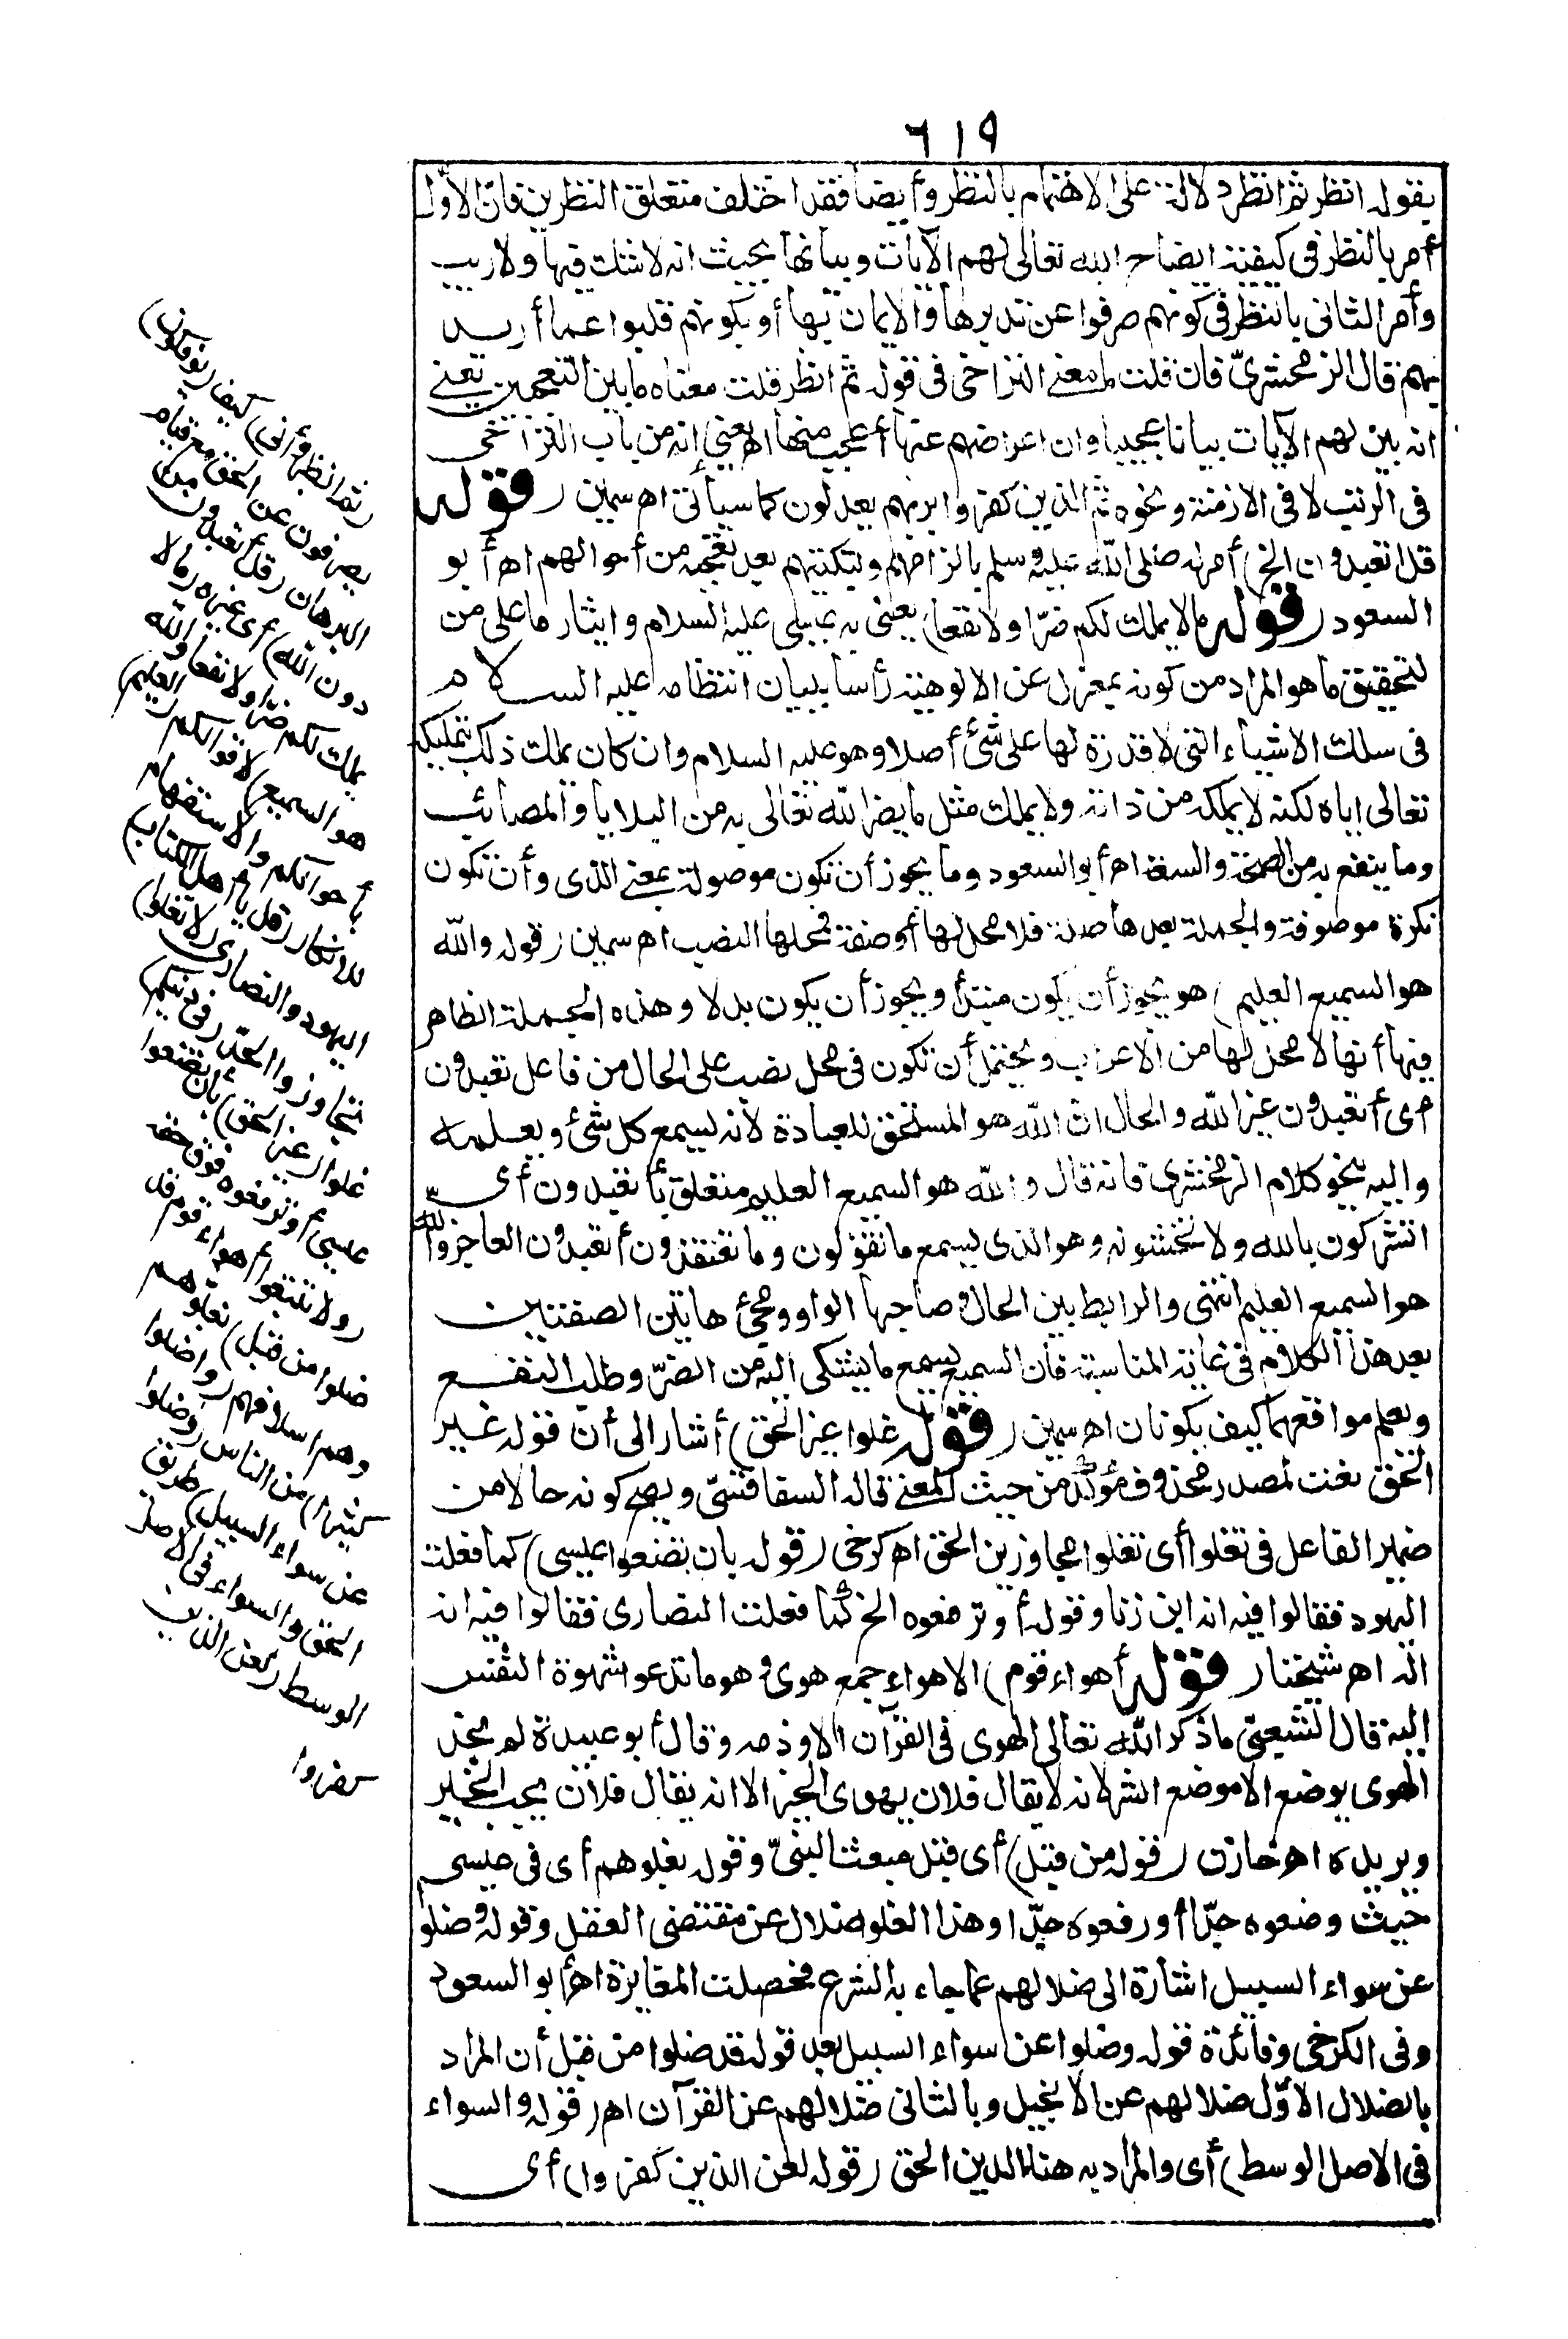 ٦١٩
يقول انظر ثم انظر دلالة على الاهتمام بالنظر وأيضا فقد اختلف متعلق النظرين فان الأول
أمر بالنظر فى كيفية ايضاح الله تعالى لهم الآيات وبيانها بحيث انه لا شك فيها ولا ريب
وأمر الثانى بالنظر فى كونهم صرفوا عن تدبرها والايمان بها أو بكونهم قلبوا عما أريد
بهم قال الزمخشرىّ فان قلت ما معنى التراخى فى قوله ثم انظر قلت معناه ما بين التعجبين يعنى
انه بين لهم الآيات بيانا عجيبا وان اعراضهم عنها أعجب منها اه يعنى إنه من باب التراخى
فى الرتب لا فى الازمنة ونحوه ثم الذين كفروا بربهم يعدلون كما سيأتى اه سمين (قوله
قل أتعبدون الخ) أمر له صلى الله عليه وسلم بالزامهم وتبكيتهم بعد تعجبه من أحوالهم اه أبو
السعود (قوله ما لا يملك لكم ضرّا ولا نفعا) يعنى به عيسى عليه السلام وايثار ما على من
لتحقيق ما هو المراد من كونه بمعزل عن الالوهية رأسا ببيان انتظامه عليه السلام
فى سلك الاشياء التى لا قدرة لها على شئ أصلا وهو عليه السلام وان كان يملك ذلك بتمليكه
تعالى اياه لكنه لا يملكه من ذاته ولا يملك مثل ما يضر الله تعالى به من البلايا والمصائب
وما ينفع به من الصحة والسعة اه أبو السعود وما يجوز أن تكون موصولة بمعنى الذى وأن تكون
نكرة موصوفة والجملة بعدها صلة فلا محل لها أو صفة فمحلها النصب اه سمين (قوله والله
هو السميع العليم) هو يجوز أن يكون مبتدأ ويجوز أن يكون بدلا وهذه الجملة الظاهر
فيها أنها لا محل لها من الاعراب ويحتمل أن تكون فى محل نصب على الحال من فاعل تعبدون
أى أتعبدون غير الله والحال ان الله هو المستحق للعبادة لأنه يسمع كل شئ ويعلمه
واليه نحو كلام الزمخشرى فانه قال والله هو السميع العليم متعلق بأتعبدون أى
اتشركون بالله ولا تخشونه وهو الذى يسمع ما تقولون وما تعتقدون أتعبدون العاجز والله
هو السميع العليم انتهى والرابط بين الحال وصاحبها الواو ومجئ هاتين الصفتين
بعد هذا الكلام فى غاية المناسبة فان السميع يسمع ما يشتكى اليه من الضرّ وطلب النفع
ويعلم مواقعهما كيف يكونان اه سمين (قوله غلوا غير الحق) أشار الى أن قوله غير
الحق نعت لمصدر محذوف مؤكد من حيث المعنى قاله السفاقسىّ ويصح كونه حالا من
ضمير الفاعل فى تغلوا أى تغلوا مجاوزين الحق اه كرخى (قوله بان تضعوا عيسى) كما فعلت
اليهود فقالوا فيه انه ابن زنا وقوله أو ترفعوه الخ كما فعلت النصارى فقالوا فيه انه
اله اه شيخنا (قوله أهواء قوم) الاهواء جمع هوى وهو ما تدعو شهوة النفس
اليه قال الشعبىّ ما ذكر الله تعالى الهوى فى القرآن الا وذمه وقال أبو عبيدة لم نجد
الهوى يوضع الا موضع الشر لانه لا يقال فلان يهوى الخير الا انه يقال فلان يحب الخير
ويريده اه خازن (قوله من قبل) أى قبل مبعث النبىّ وقوله بغلوهم أى فى عيسى
حيث وضعوه جدّا أو رفعوه جدّا وهذا الغلو ضلال عن مقتضى العقل وقوله وضلوا
عن سواء السبيل اشارة الى ضلالهم عما جاء به الشرع فحصلت المغايرة اه أبو السعود
وفى الكرخى وفائدة قوله وضلوا عن سواء السبيل بعد قوله قد ضلوا من قبل أن المراد
بالضلال الاوّل ضلالهم عن الانجيل وبالثانى ضلالهم عن القرآن اه (قوله والسواء
فى الاصل الوسط) أى والمراد به هنا الدين الحق (قوله لعن الذين كفروا) أى
(ثم انظر أنى) كيف (يؤفكون)
يصرفون عن الحق مع قيام
البرهان (قل أتعبدون من
دون الله) أى غيره (ما لا
يملك لكم ضرا ولا نفعا والله
هو السميع) لاقوالكم (العليم)
بأحوالكم والاستفهام
للانكار (قل يا أهل الكتاب)
اليهود والنصارى (لا تغلوا)
تتجاوزوا الحدّ (فى دينكم)
غلوا (غير الحق) بأن تضعوا
عيسى أو ترفعوه فوق حقه
(ولا تتبعوا أهواء قوم قد
ضلوا من قبل) بغلوهم
وهم أسلافهم (وأضلوا
كثيرا) من الناس (وضلوا
عن سواء السبيل) طريق
الحق والسواء فى الاصل
الوسط (لعن الذين
كفروا